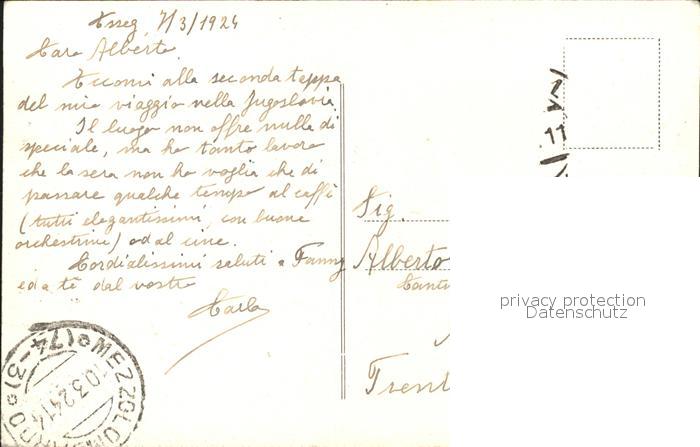 Esseg, 7/3/1924
Caro Alberto.
Eccomi alla seconda tappa
del mio viaggio nella Jugoslavia.
Il luogo non offre nulla di
speciale, ma ho tanto lavoro
che la sera non ho voglia che di
passare qualche tempo al caffè
(tutti elegantissimi, con buone
orchestrine) od al cine.
Cordialissimi saluti a Fanny
ed a te dal vostro
Carlo
Sig.
Alberto
Trent
privacy protection
Datenschutz
MEZZOLOM
(74-3)
10.3.24 14